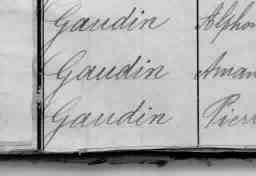 Gaudin Alphon
Gaudin Aman
Gaudin Pierr